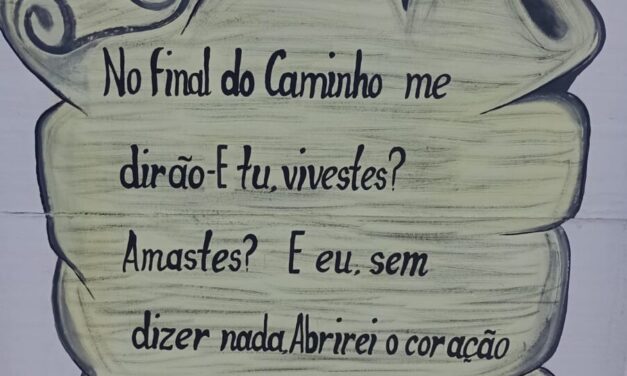 No final do Caminho me
dirão-E tu, vivestes?
Amastes? E eu, sem
dizer nada, Abrirei o coração